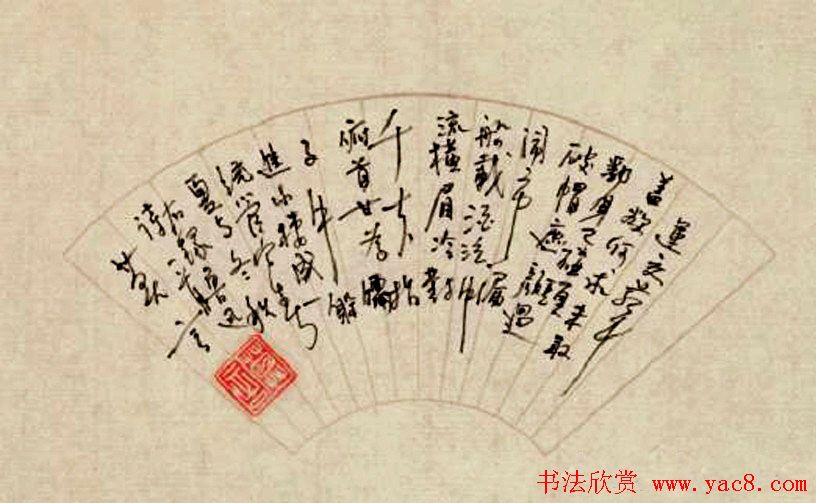 運交華
蓋欲何求未敢
翻身已碰頭
破帽遮顏過
鬧市漏
船載酒泛中
流橫眉冷對
千夫指
俯首甘為孺
子牛躲
進小樓成一
統管它春
夏與冬秋
右錄魯迅
詩
书法欣赏 www.yac8.com